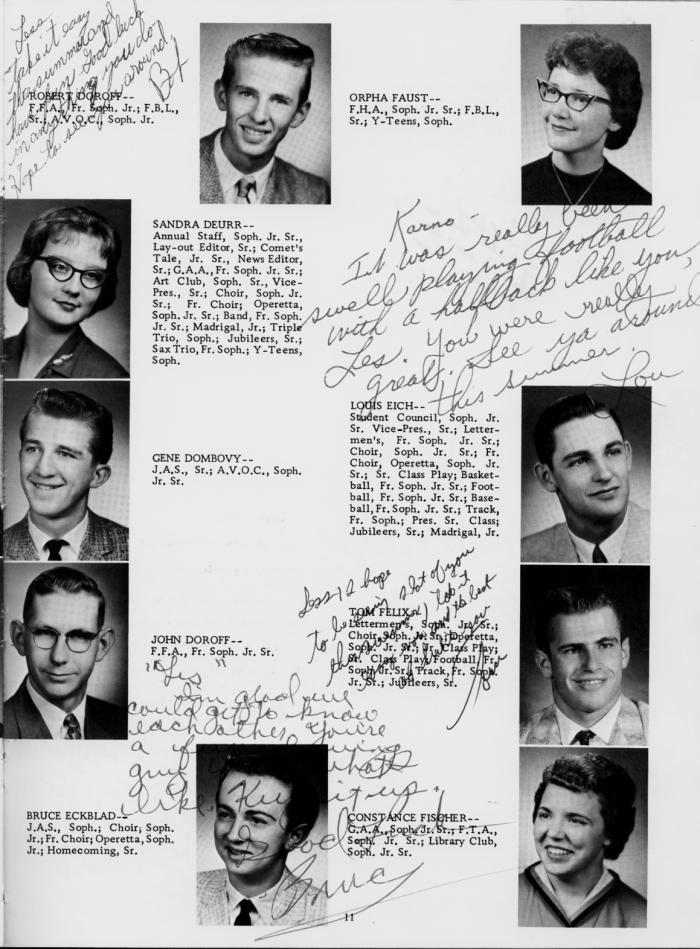 Less
Take it easy
this summer and
have fun. Good luck
in anything you do.
Hope to see you around,
ROBERT DOROFF--
F.F.A., Fr. Soph. Jr.; F.B.L.,
Sr.; A.V.O.C., Soph. Jr.
ORPHA FAUST--
F.H.A., Soph. Jr. Sr.; F.B.L.,
Sr.; Y-Teens, Soph.
SANDRA DEURR--
Annual Staff, Soph. Jr. Sr.,
Lay-out Editor, Sr.; Comet's
Tale, Jr. Sr., News Editor,
Sr.; G.A.A., Fr. Soph. Jr. Sr.;
Art Club, Soph. Sr., Vice-
Pres., Sr.; Choir, Soph. Jr.
Sr.; Fr. Choir; Operetta,
Soph. Jr. Sr.; Band, Fr. Soph.
Jr. Sr.; Madrigal, Jr.; Triple
Trio, Soph.; Jubileers, Sr.;
Sax Trio, Fr. Soph.; Y-Teens,
Soph.
Karno -
It was really been
swell playing football
with a halfback like you,
Les. You were really
great. See ya around
this summer.
Lou
GENE DOMBOVY--
J.A.S., Sr.; A.V.O.C., Soph.
Jr. Sr.
LOUIS EICH--
Student Council, Soph. Jr.
Sr. Vice-Pres., Sr.; Letter-
men's, Fr. Soph. Jr. Sr.;
Choir, Soph. Jr. Sr.; Fr.
Choir, Operetta, Soph. Jr.
Sr.; Sr. Class Play; Basket-
ball, Fr. Soph. Jr. Sr.; Foot-
ball, Fr. Soph. Jr. Sr.; Base-
ball, Fr. Soph. Jr. Sr.; Track,
Fr. Soph.; Pres. Sr. Class;
Jubileers, Sr.; Madrigal, Jr.
Less I hope
to be seeing alot of you
this summer
JOHN DOROFF--
F.F.A., Fr. Soph. Jr. Sr.
TOM FELIX--
Lettermen's, Soph. Jr. Sr.;
Choir, Soph. Jr. Sr.; Operetta,
Soph. Jr. Sr.; Jr. Class Play;
Sr. Class Play; Football, Fr.
Soph. Jr. Sr.; Track, Fr. Soph.
Jr. Sr.; Jubileers, Sr.
"Les"
I'm glad we
could get to know
each other. You're
a
guy what
like. Keep it up.
Good luck
Bruce
BRUCE ECKBLAD--
J.A.S., Soph.; Choir, Soph.
Jr.; Fr. Choir; Operetta, Soph.
Jr.; Homecoming, Sr.
CONSTANCE FISCHER--
G.A.A., Soph. Jr. Sr.; F.T.A.,
Soph. Jr. Sr.; Library Club,
Soph. Jr. Sr.
11